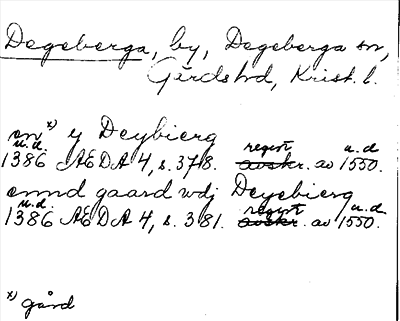 Degeberga, by, Degeberga sn,
Gärds hd, Krist. l.
en x) y Deybierg
u.d. regest u.d.
1386 ÆDA 4, s. 378. avskr. av 1550.
ennd gaard wdj Deyebierg
u.d. regest u.d.
1386 ÆDA 4, s. 381. avskr. av 1550.
x) gård